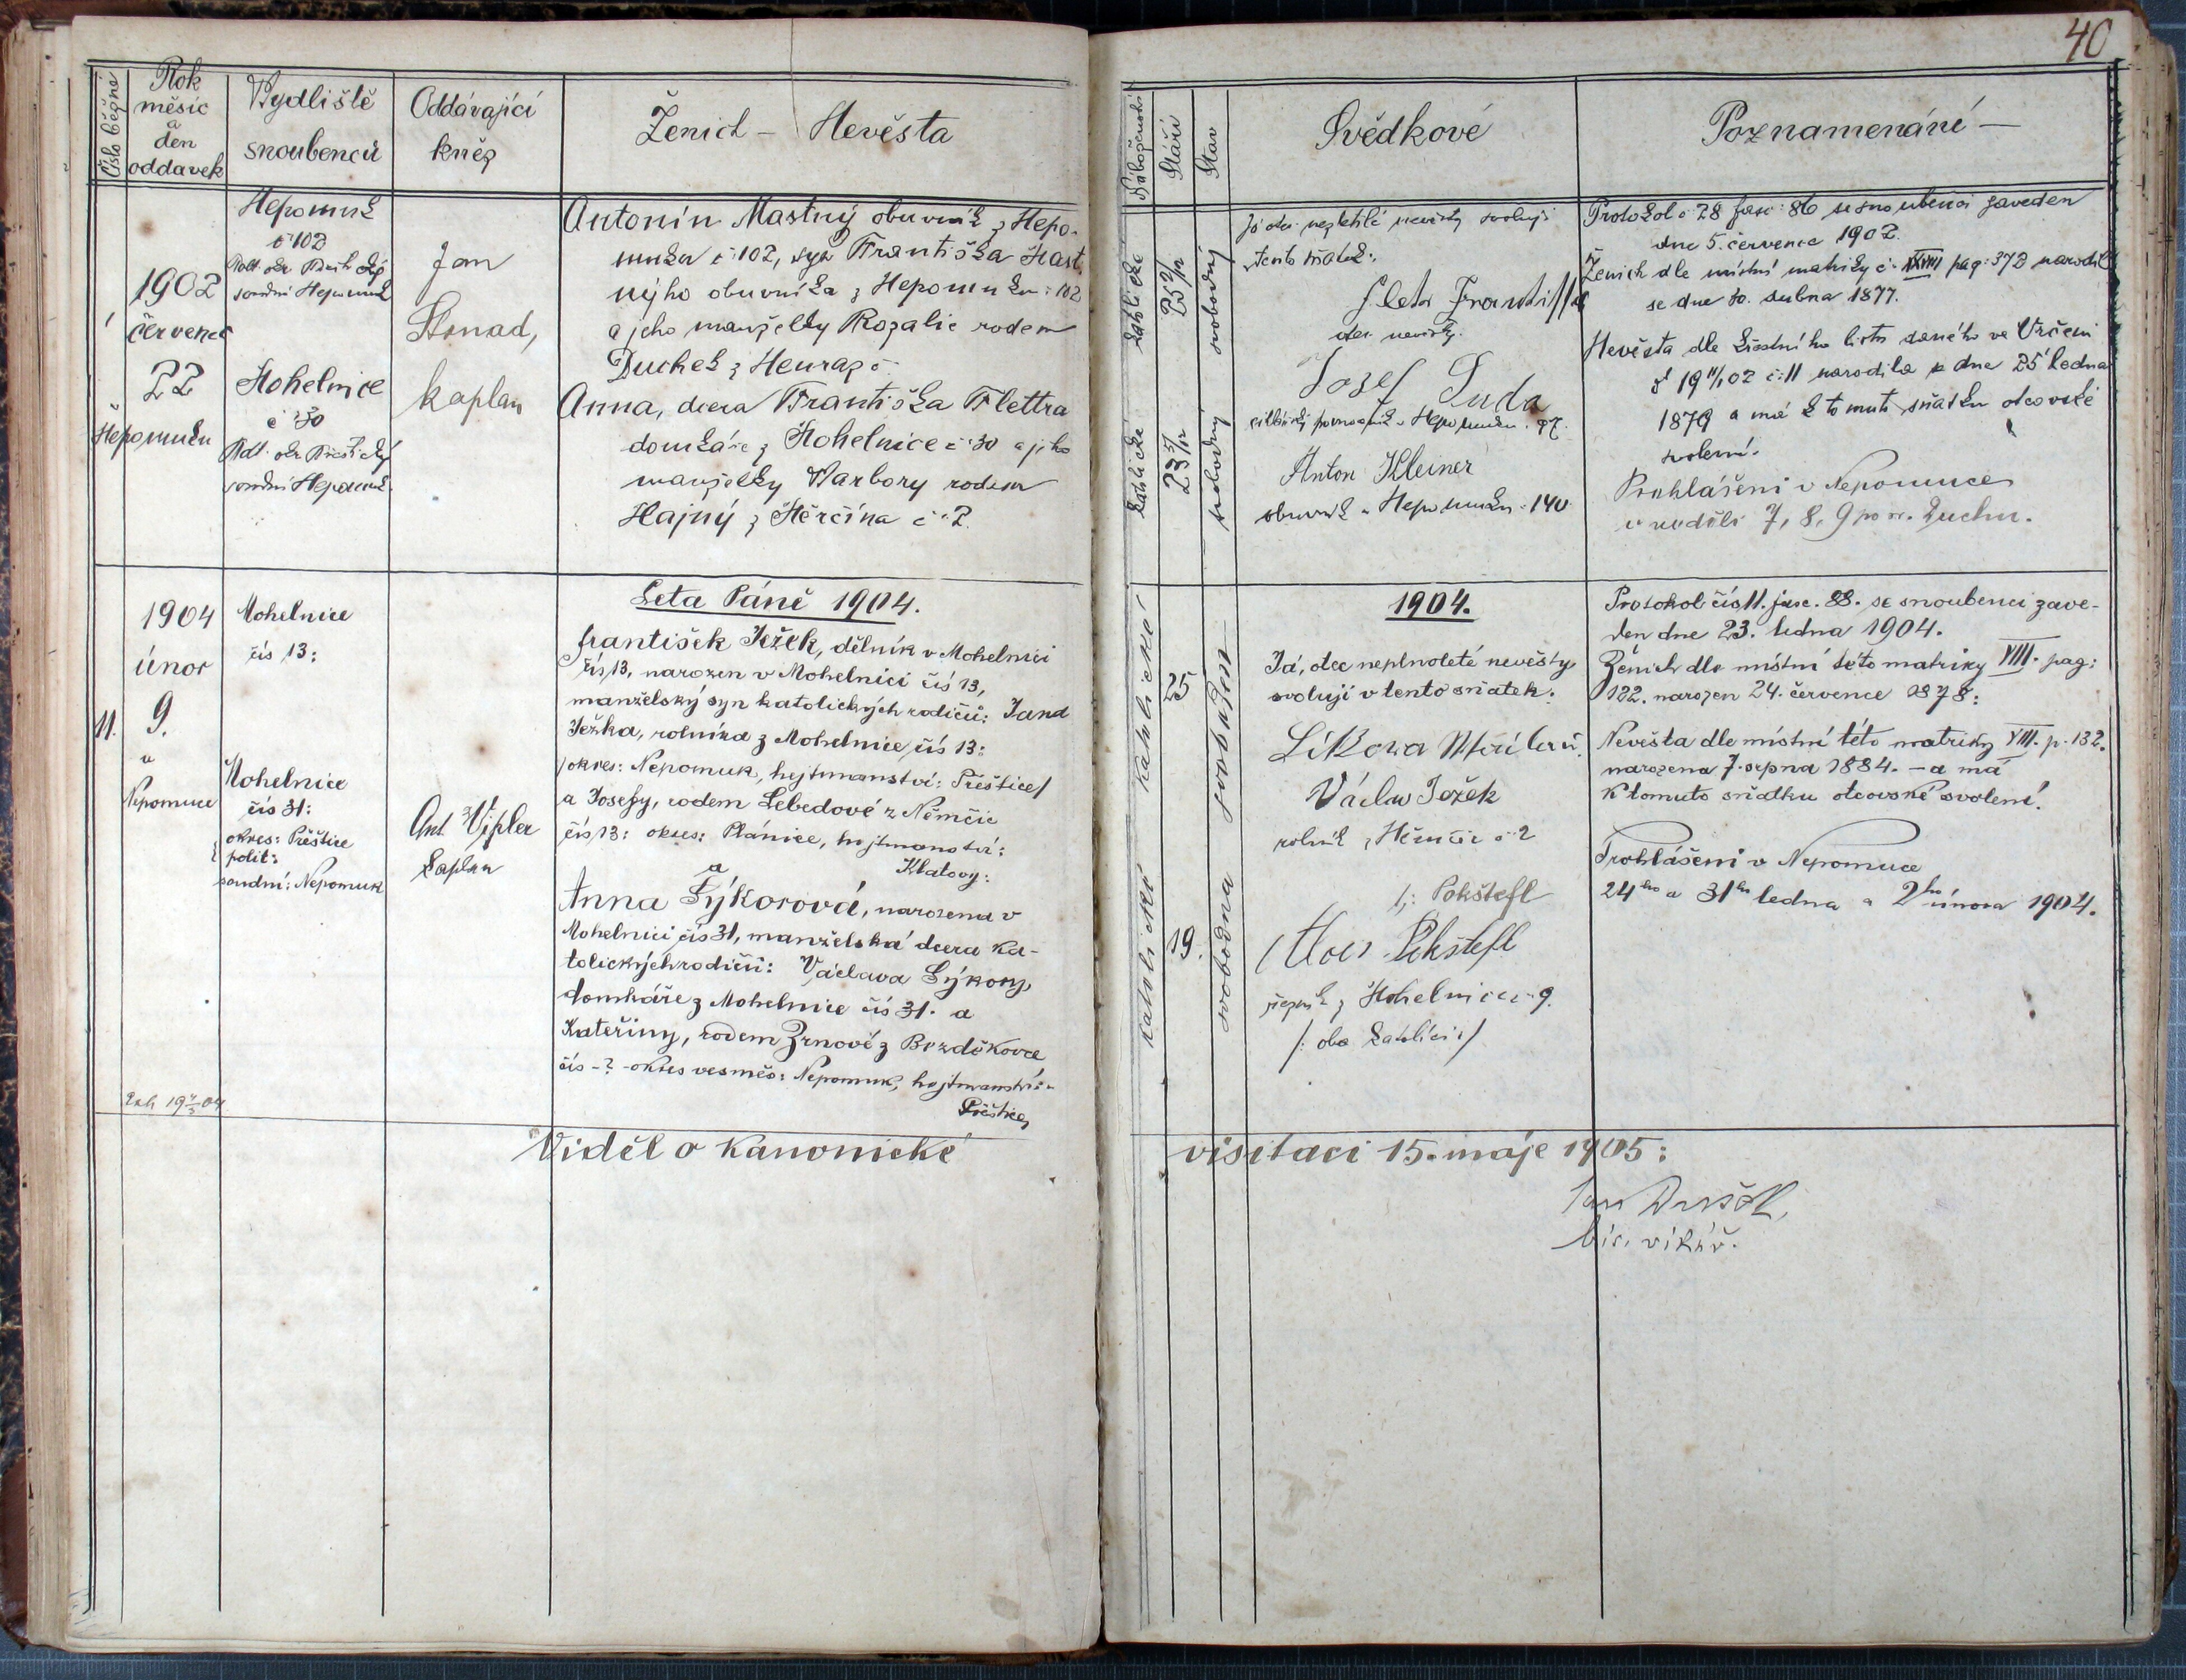 40
Číslo běžné
Rok
měsíc
a
den
oddavek
Bydliště
snoubenců
Oddávající
kněz
Ženich – Nevěsta
Náboženství
Stáří
Stav
Svědkové
Poznamenání —
1902
červenec
22
Nepomuk
č 102
soudní Nepomuk
Mohelnice
č 30
soudní Nepomuk
Jan
kaplan
Antonín Mastný obuvník z Nepo-
muku č 102, syn Františka Mast
ného obuvníka z Nepomuku č 102
a jeho manželky Rozalie rodem
Duchek z
Anna, dcera Františka Flettra
domkáře z Mohelnice č 30 a jeho
manželky Barbory rodem
Hajný z Měrčína č 2.
katolické
25
svobodný
katolické
23
svobodný
Já otec nezletilé nevěsty svoluji
v tento sňatek.
otec nevěsty.
Josef Duda
Anton Kleiner
obuvník v Nepomuku č 140
Protokol č 28 fasc: 86 se snoubenci zaveden
dne 5. července 1902.
Ženich dle místní matriky č: XXVIII pag: 372 narodil
se dne 10. dubna 1877.
Nevěsta dle křestního listu daného ve Vrčeni
č: 11 narodila se dne 25 ledna
1879 a má k tomuto sňatku otcovské
svolení.
Prohlášeni v Nepomuce
v neděli 7, 8, 9 po sv. Duchu.
Leta Páně 1904.
1904
únor
9.
11.
v
Nepomuce
Mohelnice
čís 13:
Mohelnice
čís 31:
okres: Přeštice
polit:
soudní: Nepomuk
Ant. Vipler
kaplan
František Ježek, dělník v Mohelnici
čís 13, narozen v Mohelnici čís 13,
manželský syn katolických rodičů: Jana
Ježka, rolníka z Mohelnice čís 13:
/okres: Nepomuk, hejtmanství: Přeštice/
a Josefy, rodem Lebedové z Němčic
čís 13: okres: Plánice, hejtmanství:
Klatovy:
a
Anna Sýkorová, narozena v
Mohelnici čís 31, manželská dcera ka-
tolických rodičů: Václava Sýkory,
domkáře z Mohelnice čís 31. a
Kateřiny, rodem Zrnové z Bezděkovce
čís -? - okres vesměs: Nepomuk, hejtmanství:-
Přeštice,
katolické
25
svoboden
katolické
19.
svobodna
1904.
Já, otec neplnoleté nevěsty,
svoluji v tento sňatek.
Václav Ježek
rolník z Němčic č 2
Pokštefl
Alois Pokštefl
řezník z Mohelnice č 9.
/: oba katolíci :/
Protokol čís 11. fasc. 88. se snoubenci zave-
den dne 23. ledna 1904.
Ženich dle místní této matriky VIII. pag:
122. narozen 24. července 1878:
Nevěsta dle místní této matriky VIII. p. 132.
narozena 7. srpna 1884. — a má
k tomuto sňatku otcovské svolení.
Prohlášeni v Nepomuce
24ho a 31ho ledna a 2ho února 1904.
Viděl o kanonické visitaci 15. máje 1905:
bis. vikář.